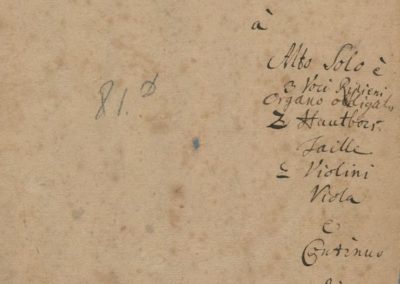 à
Alto Solo è
3 Voci Ripieni
Organo obligato
2 Hautbois.
Taille
2 Violini
Viola
e
Continuo
81.D